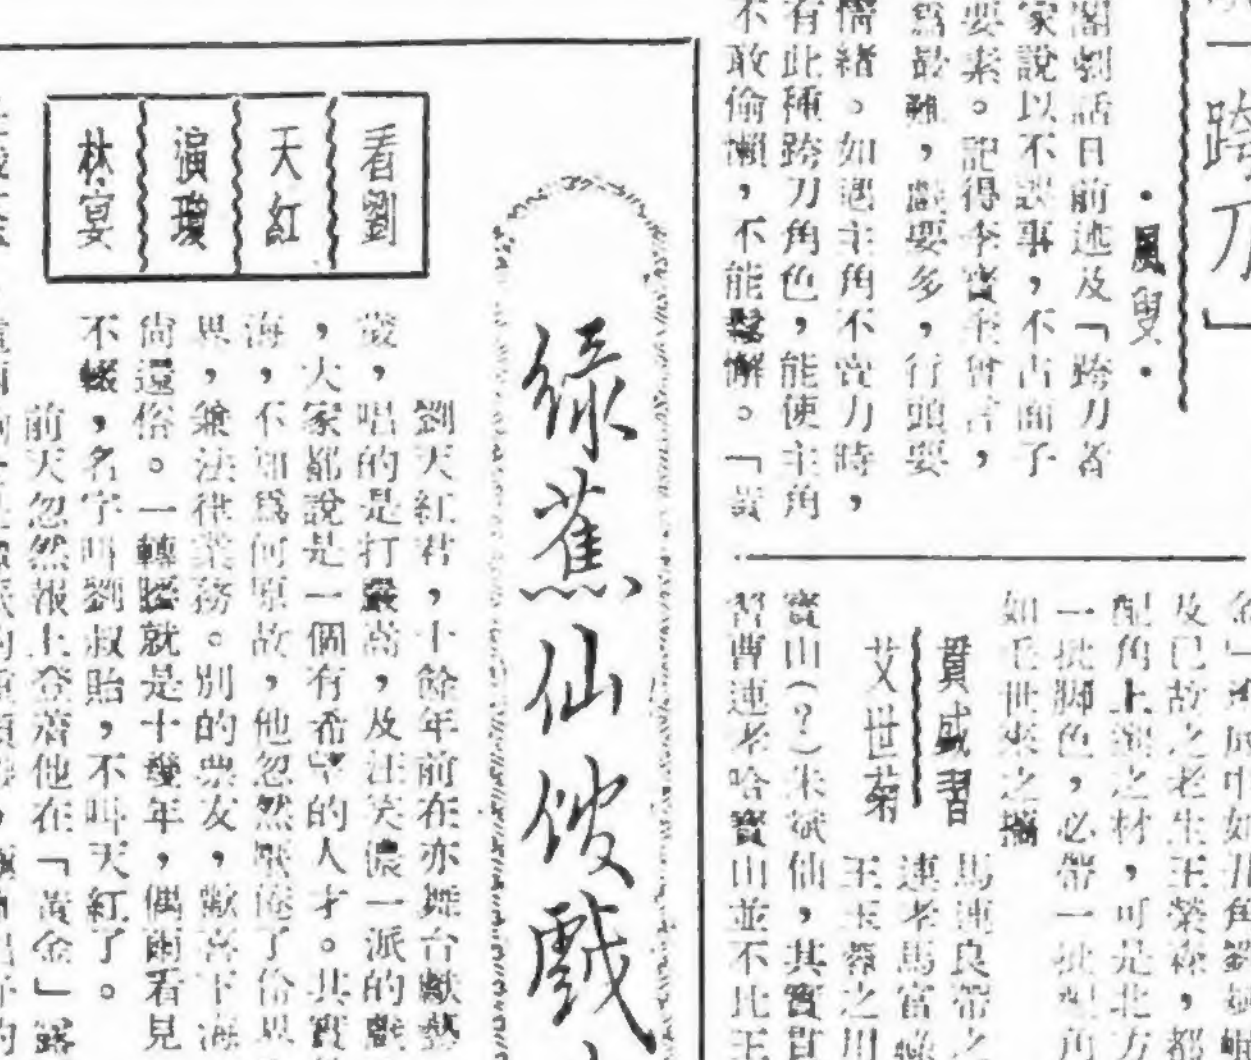 跨刀」
·風叟·
劇話日前述及「跨刀者
家說以不誤事，不占面子
要素。記得李寶奎曾言，
爲最難，戲要多，行頭要
情緒。如遇主角不賣力時，
有此種跨刀角色，能使主角
不敢偷懶，不能鬆懈。「黃
及已故之老生王榮森，都
配角上選之材，可是北方
一批脚色，必帶一批配角
如毛世來之攜
貫盛習
艾世菊
馬連良帶之
連老馬富祿
王玉蓉之用
寶山（？）朱斌仙，其實貫
習曹連老哈寶山並不比王
綠蕉仙館戲
看劉
天紅
演瓊
林宴
劉天紅君，十餘年前在亦舞台獻藝
歲，唱的是打嚴嵩，及汪笑儂一派的戲
，大家都說是一個有希望的人才。其實
海，不知爲何原故，他忽然厭倦了俗界
界，兼法律業務。別的票友，歡喜下海
尙還俗。一轉瞬就是十幾年，偶爾看見
不輟，名字叫劉叔貽，不叫天紅了。
前天忽然報上登着他在「黃金」露